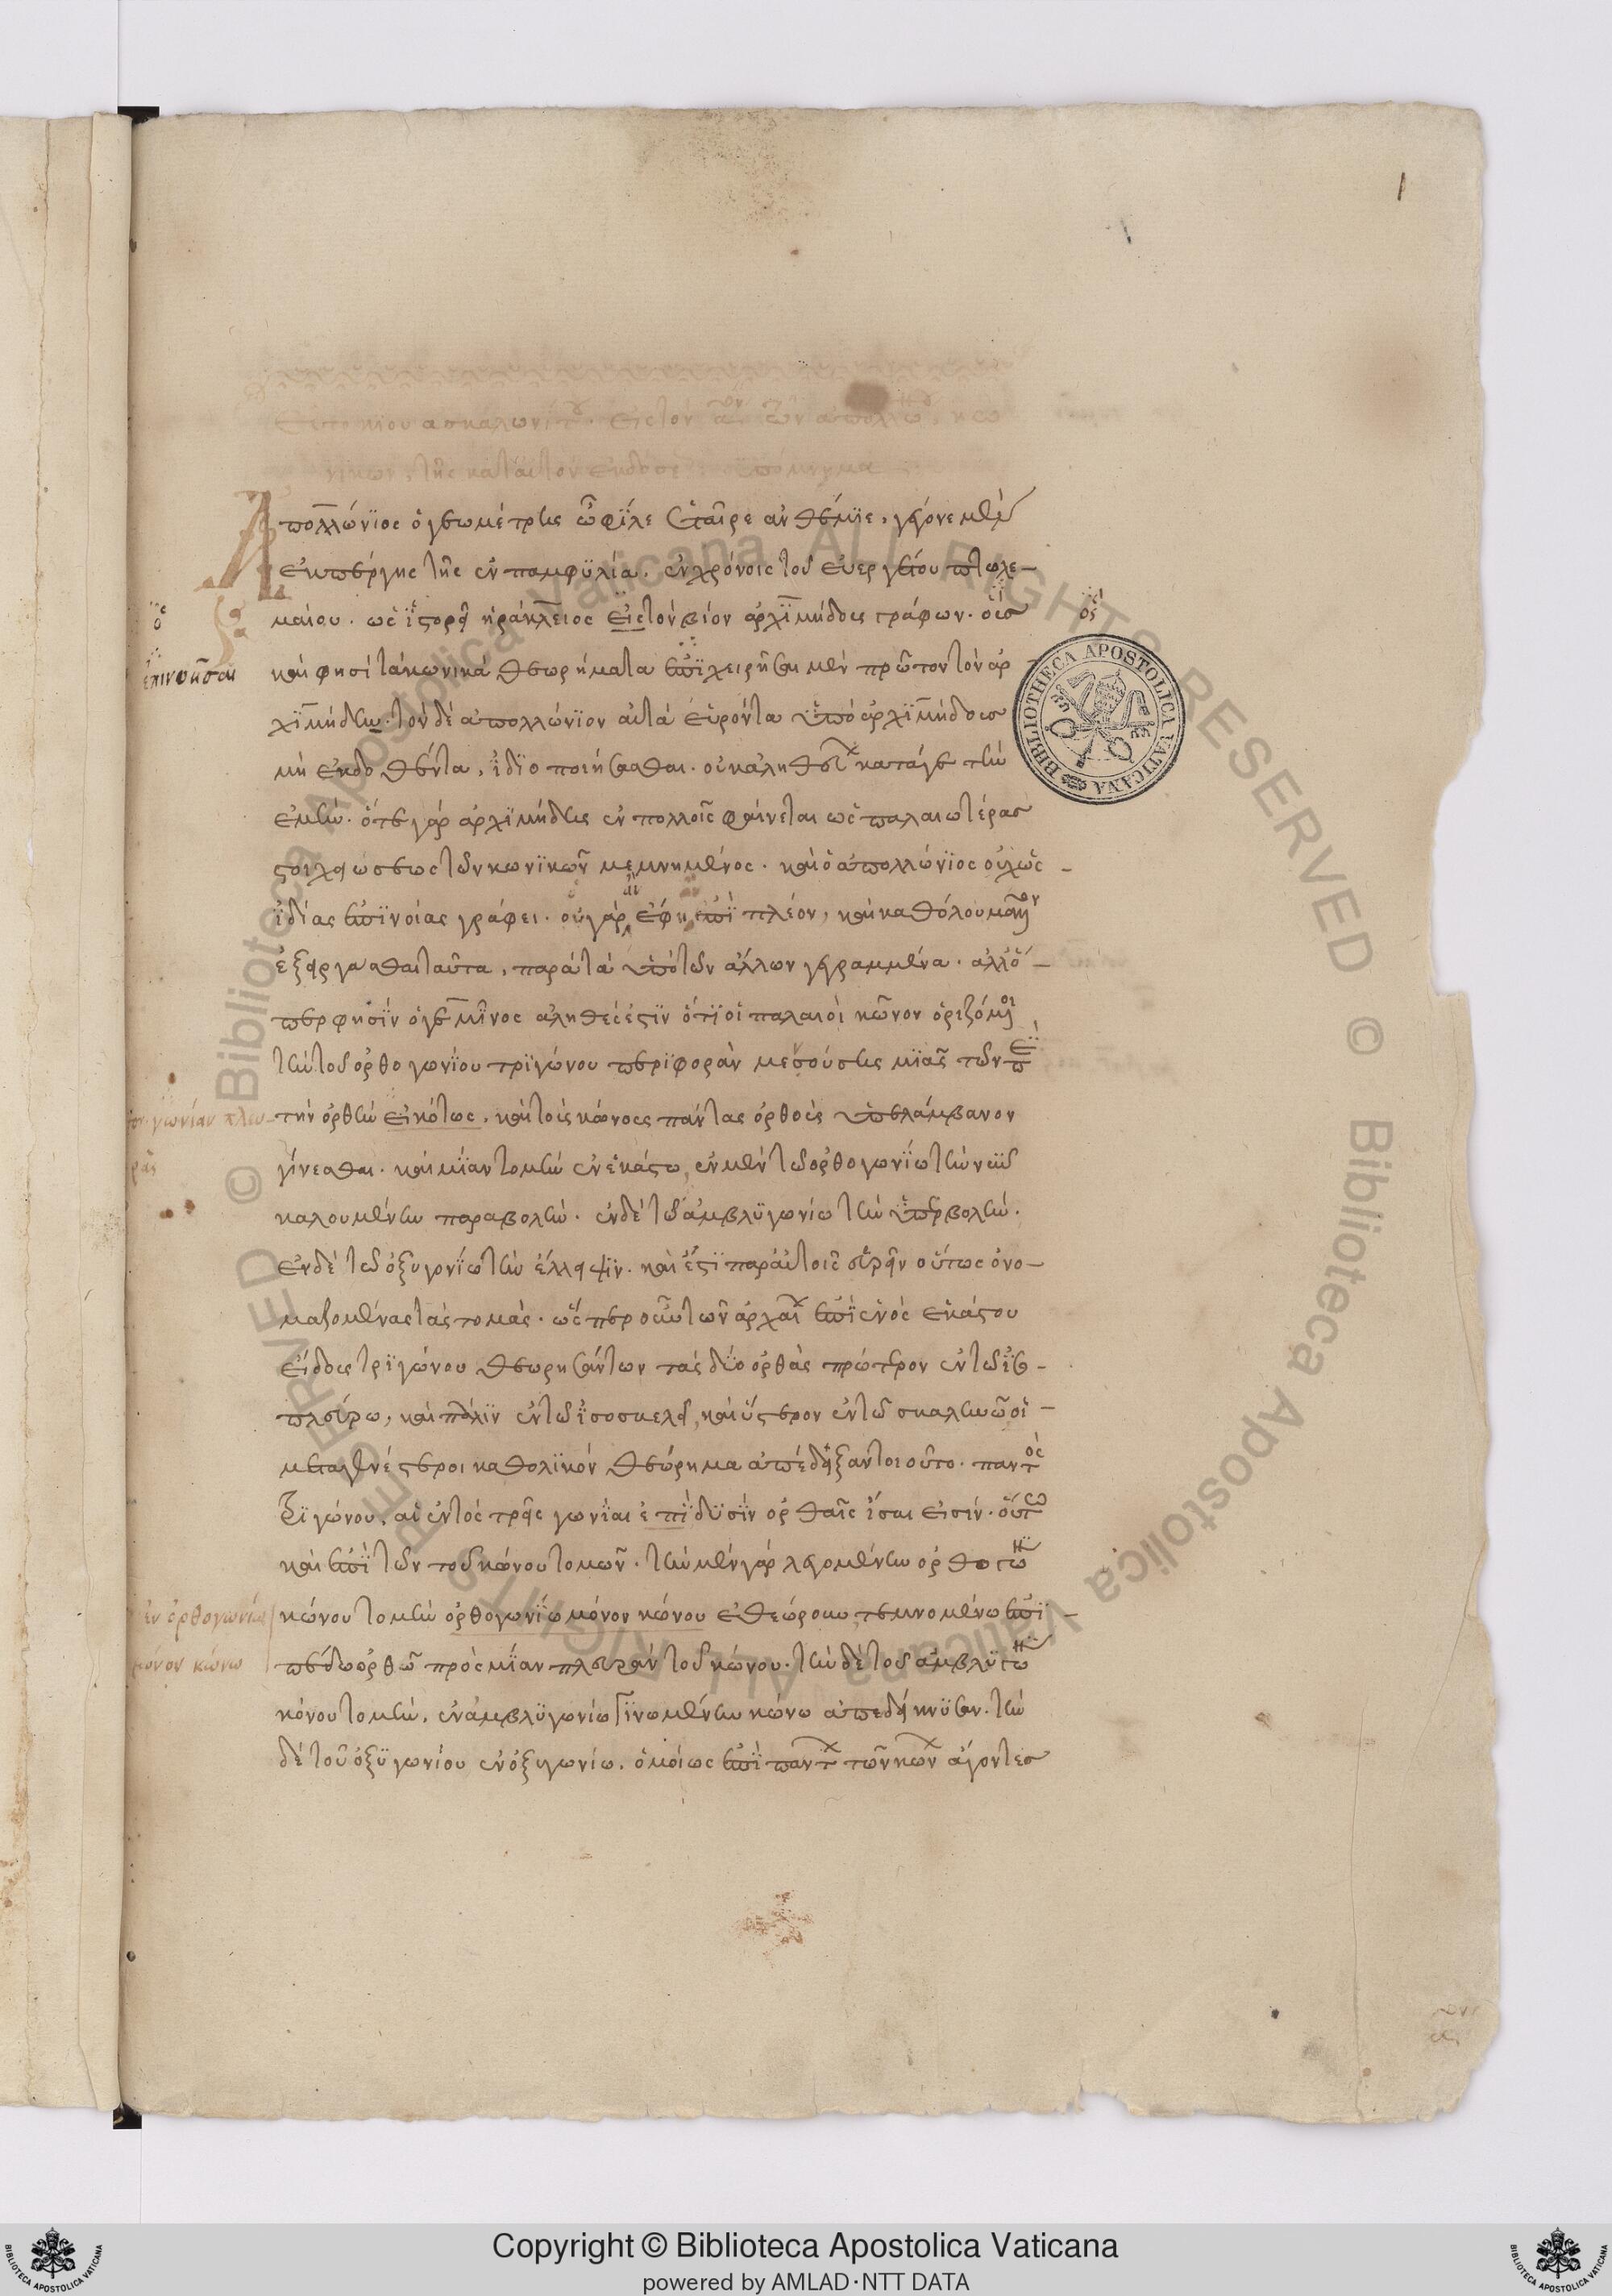 1
Εὐτοκίου ἀσκαλωνίτου· εἰς τὸν αον τῶν ἀπολλωνίου κω
νικῶν, τῆς κατ' αὐτὸν ἐκδόσεως ὑπόμνημα
Ἀπολλώνϊος ὁ γεωμέτρης ὦ φίλε ἑταῖρε ἀνθέμϊε, γέγονε μὲν
ἐκ πέργης τῆς ἐν παμφυλία. ἐν χρόνοις τοῦ εὐεργέτου πτολε-
μαίου. ὡς ἱστορεῖ ἡράκλειος εἰς τὸν βίον ἀρχϊμήδους γράφων. οἷσ
ὃς
ὃς
καὶ φησὶ τὰ κωνικὰ θεωρήματα ἐπϊχειρῆσαι μὲν πρῶτον τὸν ἀρ
ἐπινοῆσαι
χϊμήδην. τὸν δὲ ἀπολλώνϊον αὐτὰ εὑρόντα ὑπὸ ἀρχϊμήδουσ
μὴ ἐκδοθέντα, ἰδϊοποιήσασθαι. οὐκ ἀληθεύων κατά γε τὴν
ἐμήν. ὅ τε γὰρ ἀρχϊμήδης ἐν πολλοῖς φαίνεται ὡς παλαιοτέρασ
στοιχειώσεως τῶν κωνϊκῶν μεμνημένος. καὶ ὁ ἀπολλώνϊος οὐχ ὡς -
ἰδίας ἐπϊνοίας γράφει. οὐ γὰρ ἂν ἔφη ἐπὶ πλέον, καὶ καθόλου μᾶλλον
ἐξειργάσθαι ταῦτα, παρὰ τὰ ὑπὸ τῶν ἄλλων γεγραμμένα. ἀλλ' ὅ -
περ φησὶν ὁ γεμῖνος ἀληθές ἐστϊν ὅτϊ οἱ παλαιοὶ κῶνον ὁριζόμενοι
τὴν τοῦ ὀρθογωνίου τρϊγώνου περϊφορὰν μενούσης μϊᾶς τῶν περὶ
τὴν ὀρθὴν εἰκότως, καὶ τοὺς κώνους πάντας ὀρθοὺς ὑπελάμβανον
γωνίαν πλευ
ρᾶς
γίνεσθαι. καὶ μίαν τομὴν ἐν ἑκάστω, ἐν μὲν τῶ ὀρθογωνίω τὴν νῦν
καλουμένην παραβολήν. ἐν δὲ τῶ ἀμβλϋγωνίω τὴν ὑπερβολήν.
ἐν δὲ τῶ ὀξυγωνίω τὴν ἔλλειψϊν. καὶ ἔστϊ παρ' αὐτοῖς εὑρεῖν οὕτως ὀνο-
μαζομένας τὰς τομάς. ὥσπερ οὖν τῶν ἀρχαίων ἐπὶ ἑνὸς ἑκάστου
εἴδους τρϊγώνου θεωρησάντων τὰς δύο ὀρθὰς πρότερον ἐν τῶ ἰσο-
πλεύρω, καὶ πάλϊν ἐν τῶ ἰσοσκελεῖ, καὶ ὕστερον ἐν τῶ σκαληνῶ οἱ -
μεταγενέστεροι καθολϊκὸν θεώρημα ἀπέδειξαν τοιοῦτο. παντὸς
τρϊγώνου, αἱ ἐντὸς τρεῖς γωνίαι ἐπὶ δυσὶν ὀρθαῖς ἴσαι εἰσίν. οὕτως
καὶ ἐπὶ τῶν τοῦ κώνου τομῶν. τὴν μὲν γὰρ λεγομένην ὀρθογωνίου
κώνου τομὴν ὀρθογωνίω μόνον κώνου ἐθεώρουν, τεμνομένω ἐπϊ -
ἐν ὀρθογωνίω
μόνον κώνω
πέδω ὀρθῶ πρὸς μίαν πλευρὰν τοῦ κώνου. τὴν δὲ τοῦ ἀμβλυγωνίου
κώνου τομὴν, ἐν ἀμβλϋγωνίω γϊνομένην κώνω ἀπεδείκνϋσαν. τὴν
δὲ τοῦ ὀξϋγωνίου ἐν ὀξυγωνίω. ὁμοίως ἐπὶ πάντων τῶν κώνων ἄγοντεσ
BIBLIOTHECA APOSTOLICA VATICANA
© Biblioteca Apostolica Vaticana ALL RIGHTS RESERVED © Biblioteca Apostolica Vaticana ALL RIGHTS RESERVED
Copyright © Biblioteca Apostolica Vaticana
powered by AMLAD·NTT DATA
BIBLIOTECA APOSTOLICA VATICANA
BIBLIOTECA APOSTOLICA VATICANA